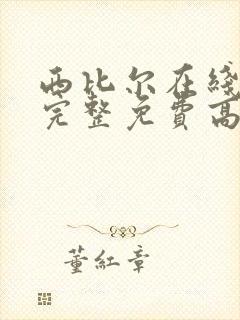 西比尔在线
完整免費高
董紅章